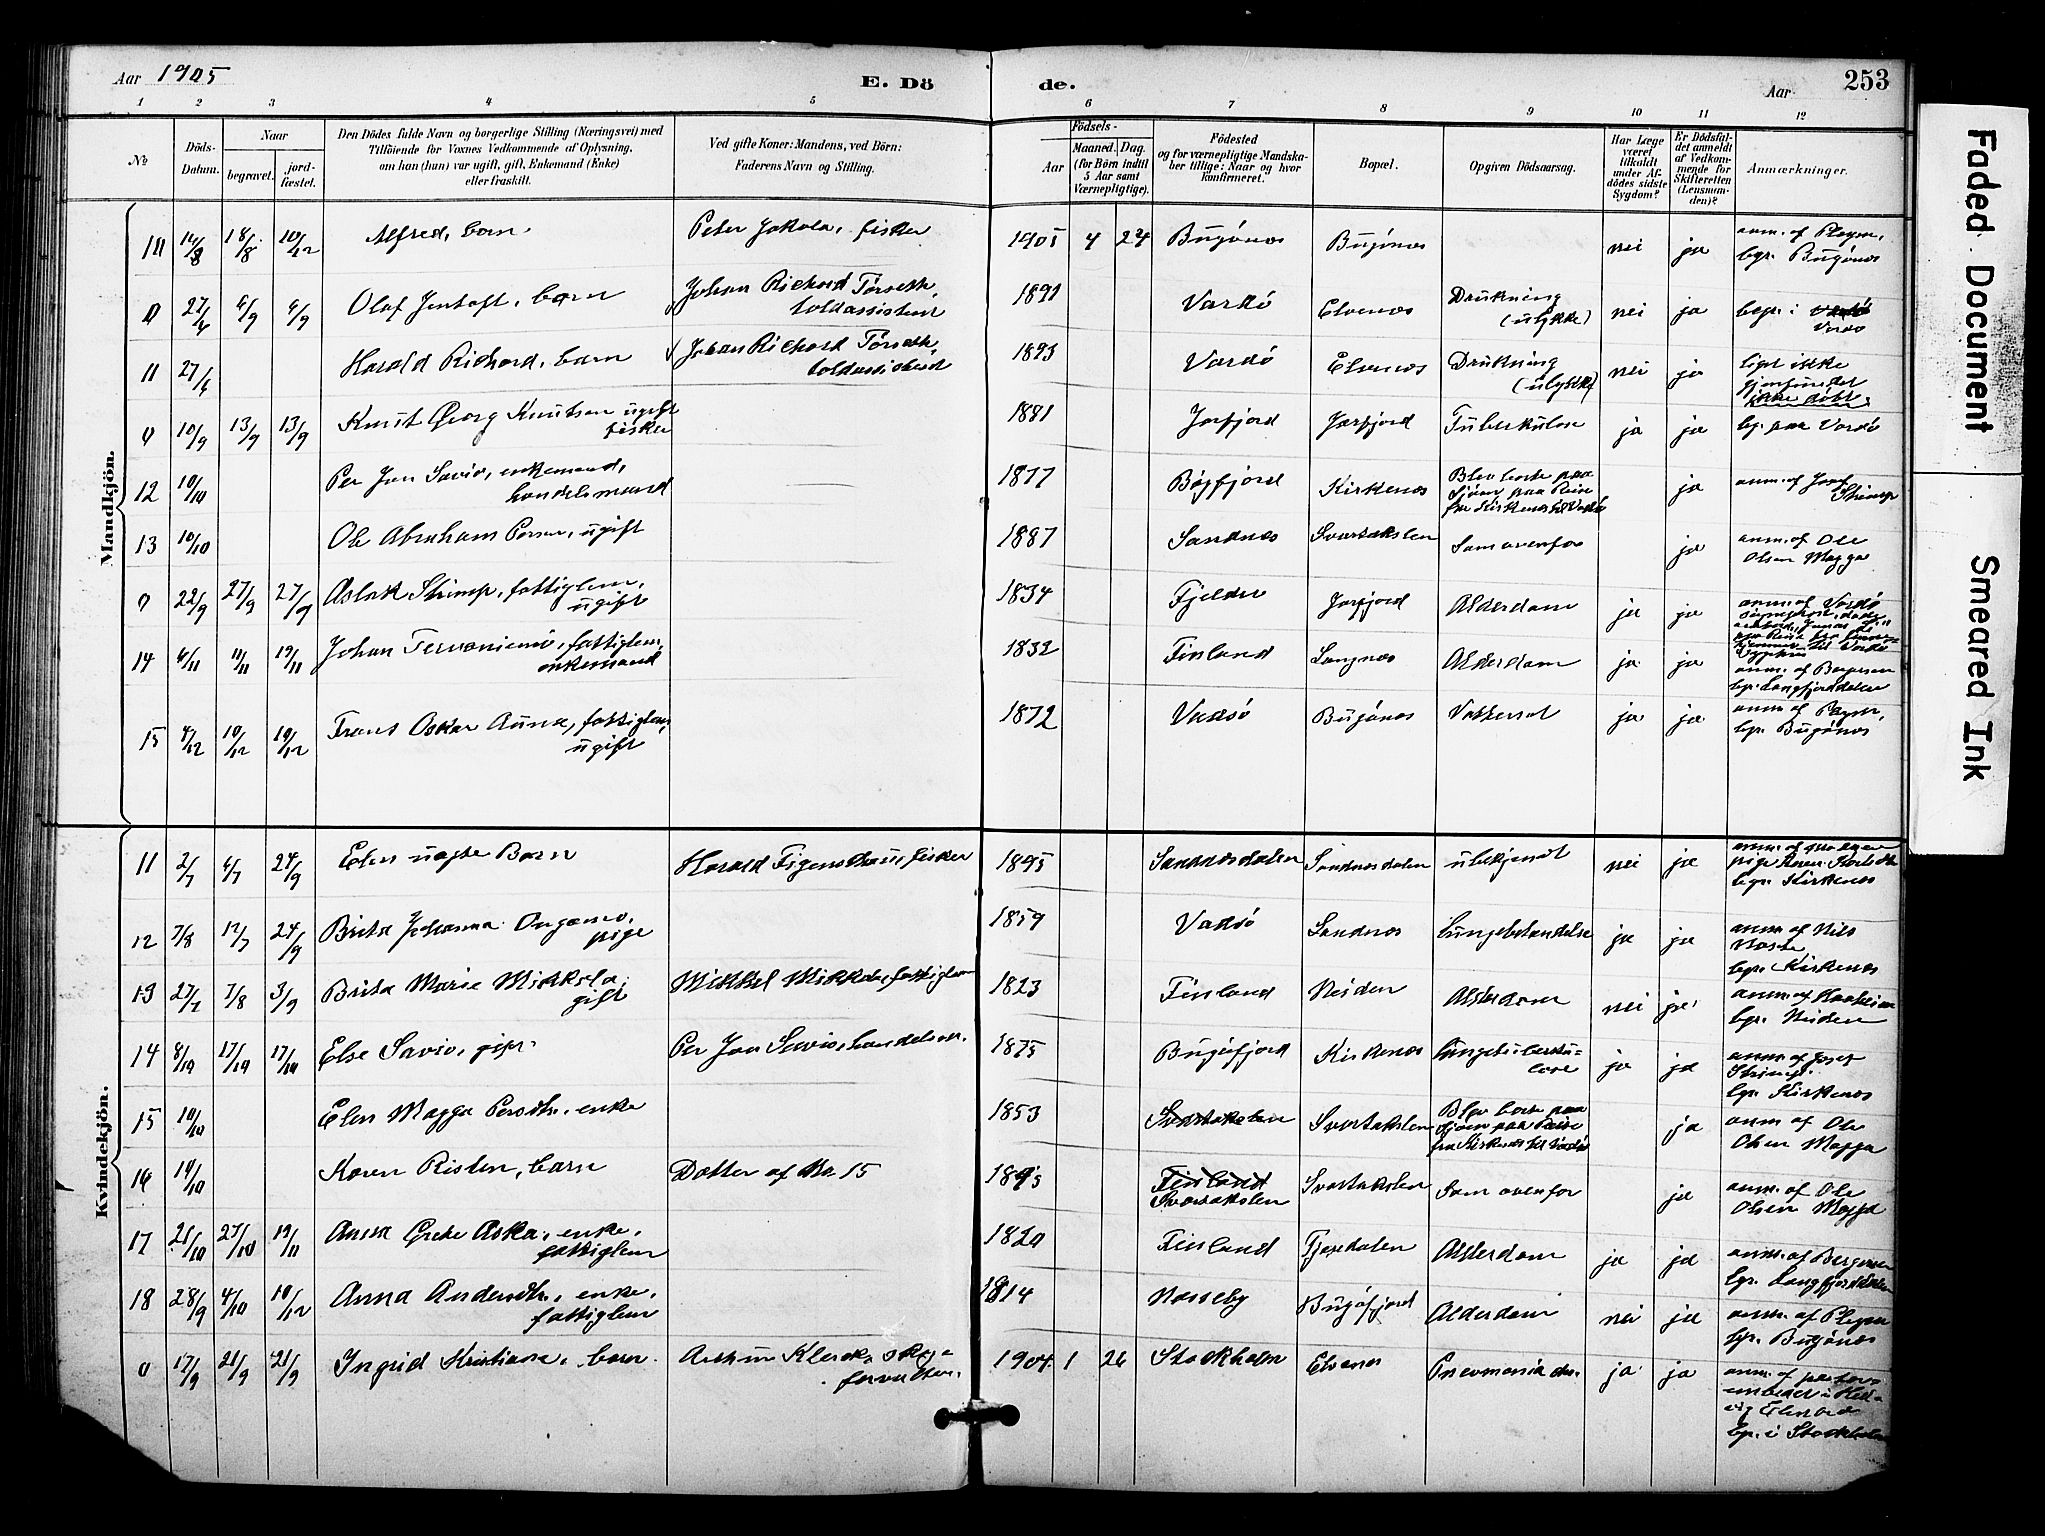 Aar 1905
E. Dö
de.
Aar
253
1 2 3 4 5 6 7 8 9 10 11 12
No
Döds-Datum.
Naar
begravet.
jord-fæstet.
Den Dödes fulde Navn og borgerlige Stilling (Næringsvei) med
Tilföiende for Voxnes Vedkommende af Oplysning,
om han (hun) var ugift, gift, Enkemand (Enke)
eller fraskilt.
Ved gifte Koner: Mandens, ved Börn:
Faderens Navn og Stilling.
Födsels-
Aar
Maaned. Dag.
(for Börn indtil
5 Aar samt
Værnepligtige).
Födested
og for værnepligtige Mandska-
ber tillige: Naar og hvor
konfirmeret.
Bopæl.
Opgiven Dödsaarsag.
Har Læge
været
tilkaldt
under Af-
dödes sidste
Sygdom?
Er Dödsfal-
det anmeldt
af Vedkom-
mende for
Skifteretten
(Lensman-
den)?
Anmærkninger.
Mandkjön.
14/8 18/8 10/12 Alfred, barn. Peter Jakola, fisker 1905 4 24 Bugönes Bugönes nei ja
bgr. Bugönes
0 27/4 6/9 6/9 Olaf Jentoft, barn Johan Richard
toldassistent 1891 Vardö Elvenes Drukning
(ulykke) nei ja begr. i
Vardö
11 27/4 Harald Richard, barn Johan Richard
toldassistent 1893 Vardö Elvenes Drukning
(ulykke) nei ja liget ikke
gjenfundet
0 10/9 13/9 13/9 Knut Georg Knutsen ugift
fisker 1881 Jarfjord Jarfjord Tuberkulose ja ja bg. paa Vardö
12 10/10 Per Jon Savio, enkemand,
handelsmand 1877 Bögfjord Kirkenes Blev borte paa
Sjöen paa Reise
fra Kirkenes til Vadsö ja anm. af Josef
Strimp
13 10/10 Ole Abraham Persen, ugift 1887 Sandnes Svartakslen Som ovenfor ja anm. af Ole
Olsen Magga
0 22/9 27/9 27/9 Aslak Strimp, fattiglem,
ugift 1834 Fjelden Jarfjord Alderdom ja ja anm. af Vardö
14 4/11 11/11 19/11 Johan Tervaniemi, fattiglem,
enkemand 1832 Finland Langnes Alderdom ja ja anm. af Bergersen
bgr. Langfjorddalen
15 4/12 10/12 10/12 Frans Oskar Auna, fattiglem,
ugift 1872 Vadsö Bugönes Vattersot ja ja
bgr. Bugönes
Kvindekjön.
11 2/7 6/7 24/9 Elen udøbt Barn Harald Figenschau, fisker 1895 Sandnesdalen Sandnesdalen ubekjendt nei ja
bgr. Kirkenes
12 7/8 24/9 Brita Johanna
pige 1859 Vadsö Sandnes Lungebetændelse ja ja anm. af Nils
bgr. Kirkenes
13 27/7 7/8 3/9 Brita Marie Mikkola,
gift Mikkel Mikkola, fattiglem 1823 Finland Neiden Alderdom nei ja
bgr. Neiden
14 8/10 17/10 17/10 Else Savio, gift. Per Jon Savio, handelsm. 1875 Bugöfjord Kirkenes Lungetuberku-
lose ja ja anm. af Josef
Strimp.
bgr. Kirkenes
15 10/10 Elen Magga Persdtr. enke 1853 Svartakslen Svartakslen Blev borte paa
Sjöen paa Reise
fra Kirkenes til Vadsö ja anm. af Ole
Olsen Magga
16 10/10 Karen Risten, barn Datter af No. 15 1895 Finland
Svartakslen Svartakslen Som ovenfor ja anm. af Ole
Olsen Magga
17 21/10 27/10 19/11 Anna Grete Aska, enke,
fattiglem 1820 Finland Alderdom ja ja anm. af Bergersen
bgr. Langfjorddalen
18 28/9 4/10 10/12 Anna Andersdtr., enke,
fattiglem 1814 Nesseby Bugöfjord Alderdom nei ja
bgr. Bugönes
0 17/9 21/9 21/9 Ingrid Kristiana, barn. Arthur Klerck, skog-
forvalter. 1904 1 26 Stockholm Elvenes Pneumonia ja ja
bgr. i Stockholm
Faded Document
Smeared Ink